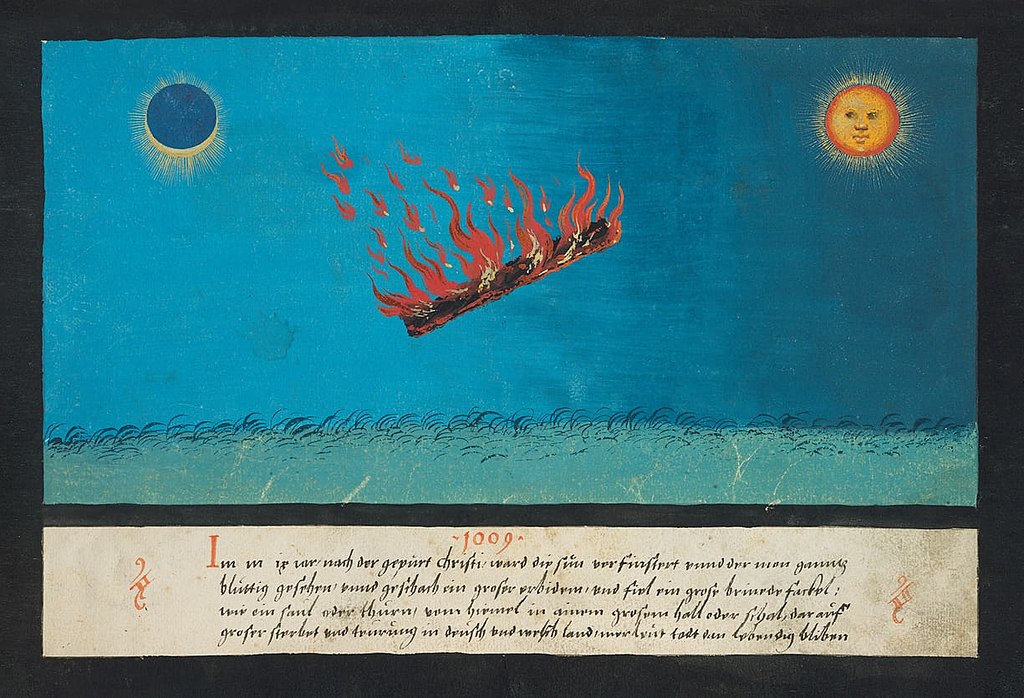 ·1009·
Im m ix iar nach der gepurt christi ward die sun verfinstert vnnd der mon ganntz
bluttig gesehen / vnnd geschach ein groser erbidem / vnd fiel ein grose brinede fackel:
wie ein saul oder thurn / vom hiemel in ainem grosem hall oder schal, dar auff
groser sterbet vnd teurung in deusch vnd welsch land / mer leut todt dan lebendig bliben